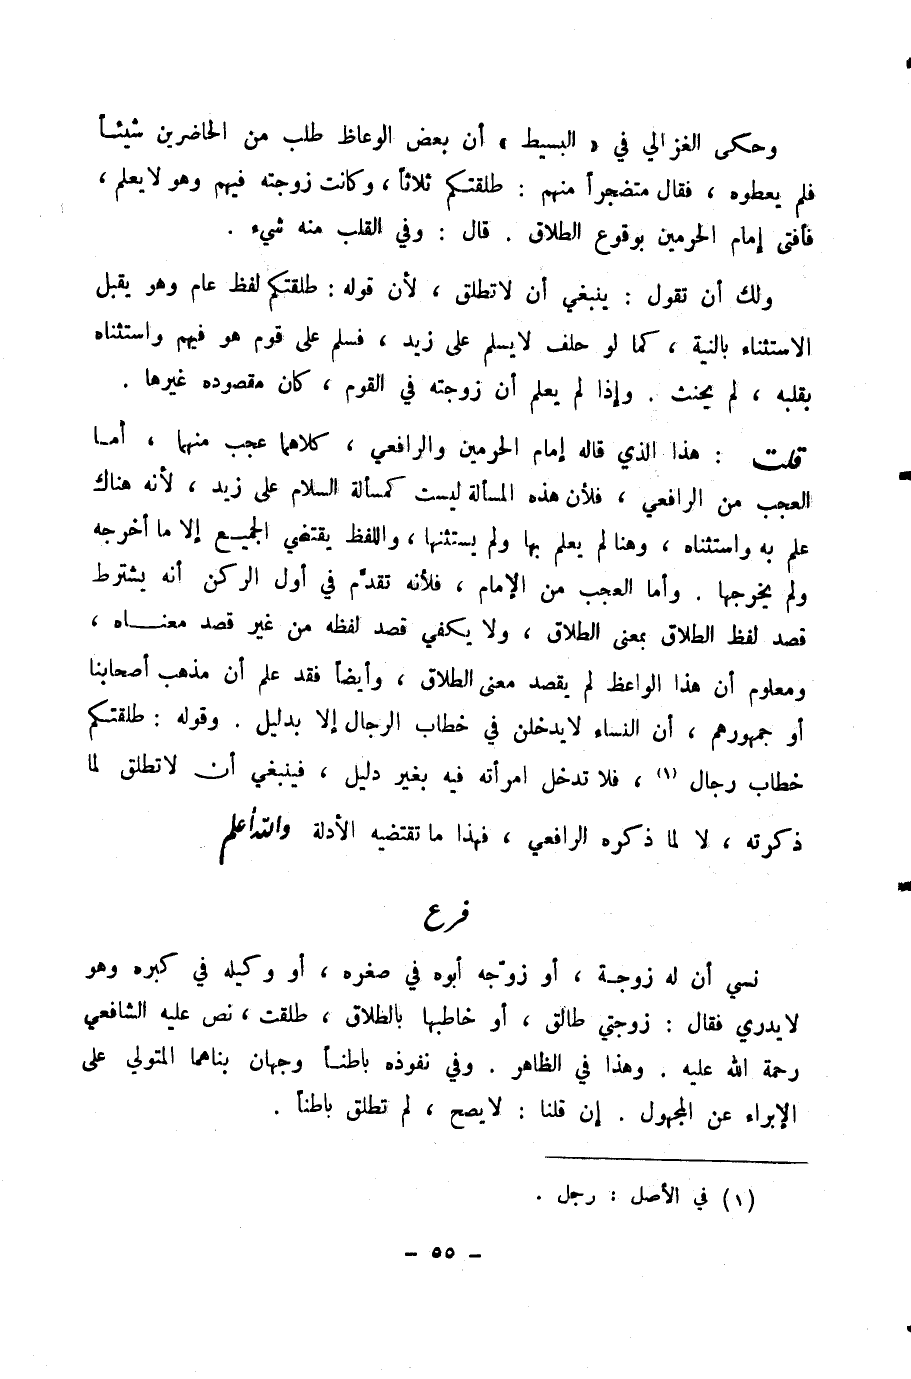 وحكى الغزالي في « البسيط » أن بعض الوعاظ طلب من الحاضرين شيئـاً
فلم يعطوه ، فقال متضجراً منهم : طلقتكم ثلاثاً ، وكانت زوجته فيهم وهو لايعلم ،
فأفتى إمام الحرمين بوقوع الطلاق . قال : وفي القلب منه شيء .
ولك أن تقول : ينبغي أن لاتطلق ، لأن قوله : طلقتكم لفظ عام وهو يقبل
الاستثناء بالنية ، كما لو حلف لايسلم على زيد ، فسلم على قوم هو فيهم واستثناه
بقلبه ، لم يحنث . وإذا لم يعلم أن زوجته في القوم ، كان مقصوده غيرها .
قلت : هذا الذي قاله إمام الحرمين والرافعي ، كلاهما عجب منهما ، أمـا
العجب من الرافعي ، فلأن هذه المسألة ليست كمسألة السلام على زيد ، لأنه هناك
علم به واستثناه ، وهنا لم يعلم بها ولم يستثنها ، واللفظ يقتضي الجميـع إلا ما أخرجه
ولم يخرجها . وأما العجب من الإمام ، فلأنه تقدَّم في أول الركن أنه يشترط
قصد لفظ الطلاق بمعنى الطلاق ، ولا يكفي قصد لفظه من غير قصد معنـــاه ،
ومعلوم أن هذا الواعظ لم يقصد معنى الطلاق ، وأيضاً فقد علم أن مذهب أصحابنا
أو جمهورهم ، أن النساء لايدخلن في خطاب الرجال إلا بدليل . وقوله : طلقتكم
خطاب رجال (١) ، فلا تدخل امرأته فيه بغير دليل ، فينبغي أن لاتطلق لما
ذكرته ، لا لما ذكره الرافعي ، فهذا ماتقتضيه الأدلة والله أعلم
فرع
نسي أن له زوجـة ، أو زوّجه أبوه في صغره ، أو وكيله في كبره وهو
لايدري فقال : زوجتي طالق ، أو خاطبها بالطلاق ، طلقت ، نص عليه الشافعي
رحمة الله عليه . وهذا في الظاهر . وفي نفوذه باطنـاً وجهان بناهما المتولي على
الإبراء عن المجهول . إن قلنا : لايصح ، لم تطلق باطناً .
(١) في الأصل : رجل .
- ٥٥ -